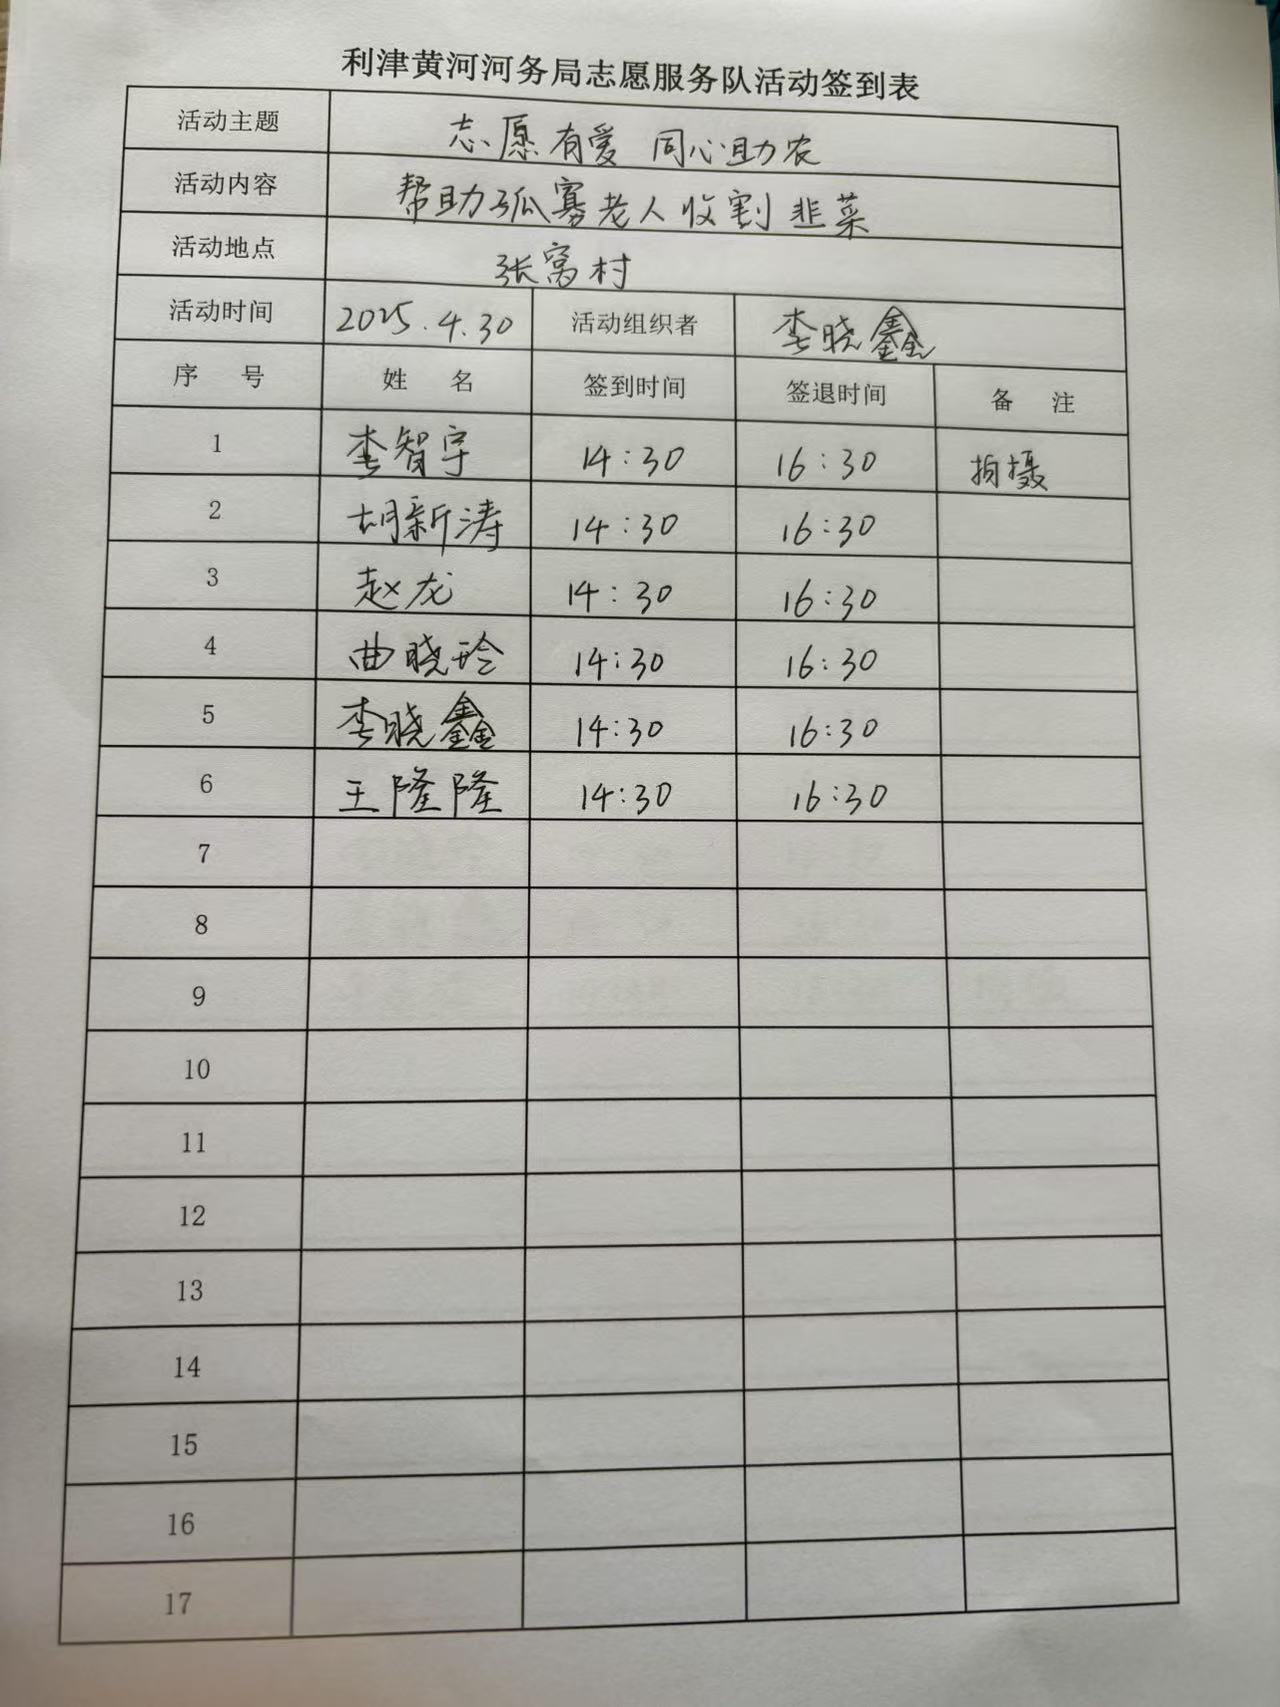 利津黄河河务局志愿服务队活动签到表
活动主题 志愿有爱 同心助农
活动内容 帮助孤寡老人收割韭菜
活动地点 张窝村
活动时间 2025.4.30 活动组织者 李晓鑫
序 号 姓 名 签到时间 签退时间 备 注
1 李智宇 14:30 16:30 拍摄
2 胡新涛 14:30 16:30
3 赵龙 14:30 16:30
4 曲晓玲 14:30 16:30
5 李晓鑫 14:30 16:30
6 王隆隆 14:30 16:30
7
8
9
10
11
12
13
14
15
16
17